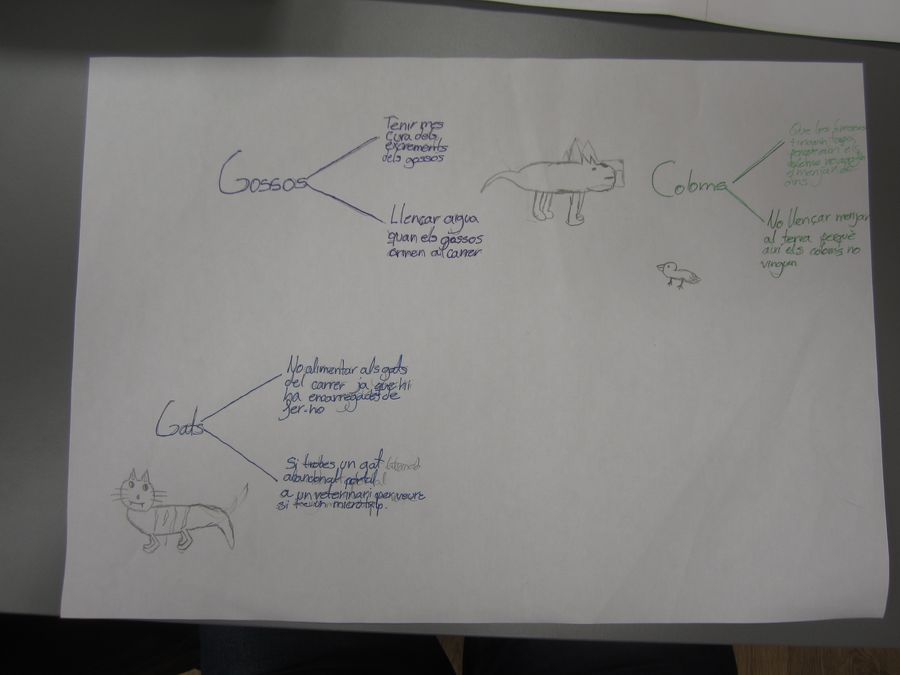 Gossos
Tenir mes
cura dels
excrements
dels gossos
Llençar aigua
quan els gossos
orinen al carrer
Coloms
Que les
tinguin tapa,
perquè així els
el menjar de
dins.
No llençar menjar
al terra perquè
així els coloms no
vinguin
Gats
No alimentar als gats
del carrer ja que hi
ha encarregades de
fer-ho
Si trobes un gat
abandonat portal
a un veterinari per veure
si te un microxip.